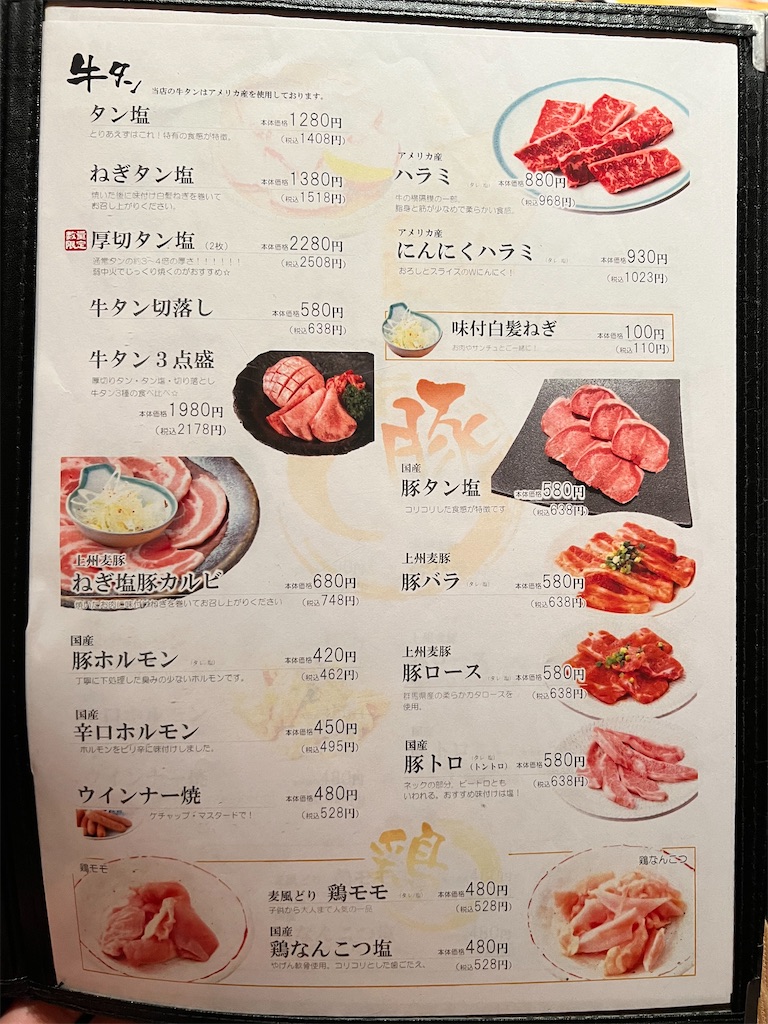 牛タン 当店の牛タンはアメリカ産を使用しております。
タン塩 本体価格1280円
とりあえずはこれ！特有の食感が特徴。 (税込1408円)
ねぎタン塩 本体価格1380円
焼いた後に味付け白髪ねぎを巻いて (税込1518円)
お召し上がりください。
数量限定 厚切タン塩 (2枚) 本体価格2280円
通常タンの約3～4倍の厚さ！！！！！！ (税込2508円)
弱中火でじっくり焼くのがおすすめ☆
牛タン切落し 本体価格580円
(税込638円)
牛タン３点盛
厚切りタン・タン塩・切り落とし
牛タン3種の食べ比べ☆
本体価格1980円
(税込2178円)
アメリカ産
ハラミ (タレ・塩) 本体価格880円
牛の横隔膜の一部。 (税込968円)
脂身と筋が少なめで柔らかい食感。
アメリカ産
にんにくハラミ (タレ・塩) 本体価格930円
おろしとスライスのWにんにく！ (税込1023円)
味付白髪ねぎ 本体価格100円
お肉やサンチュとご一緒に！ (税込110円)
豚
国産
豚タン塩 本体価格580円
コリコリした食感が特徴です (税込638円)
上州麦豚
ねぎ塩豚カルビ 本体価格680円
焼いたお肉に味付けねぎを巻いてお召し上がりください (税込748円)
上州麦豚
豚バラ (タレ・塩) 本体価格580円
(税込638円)
国産
豚ホルモン (タレ・塩) 本体価格420円
丁寧に下処理した臭みの少ないホルモンです。 (税込462円)
上州麦豚
豚ロース (タレ・塩) 本体価格580円
群馬県産の柔らかカタロースを (税込638円)
使用。
国産
辛口ホルモン 本体価格450円
ホルモンをピリ辛に味付けしました。 (税込495円)
国産
豚トロ (タレ・塩) (トントロ) 本体価格580円
ネックの部分、ピートロとも (税込638円)
いわれる。おすすめ味付けは塩！
ウインナー焼 本体価格480円
ケチャップ・マスタードで！ (税込528円)
鶏
鶏モモ
鶏なんこつ
麦風どり 鶏モモ (タレ・塩) 本体価格480円
子供から大人まで人気の一品 (税込528円)
国産
鶏なんこつ塩 本体価格480円
やげん軟骨使用。コリコリとした歯ごたえ。 (税込528円)